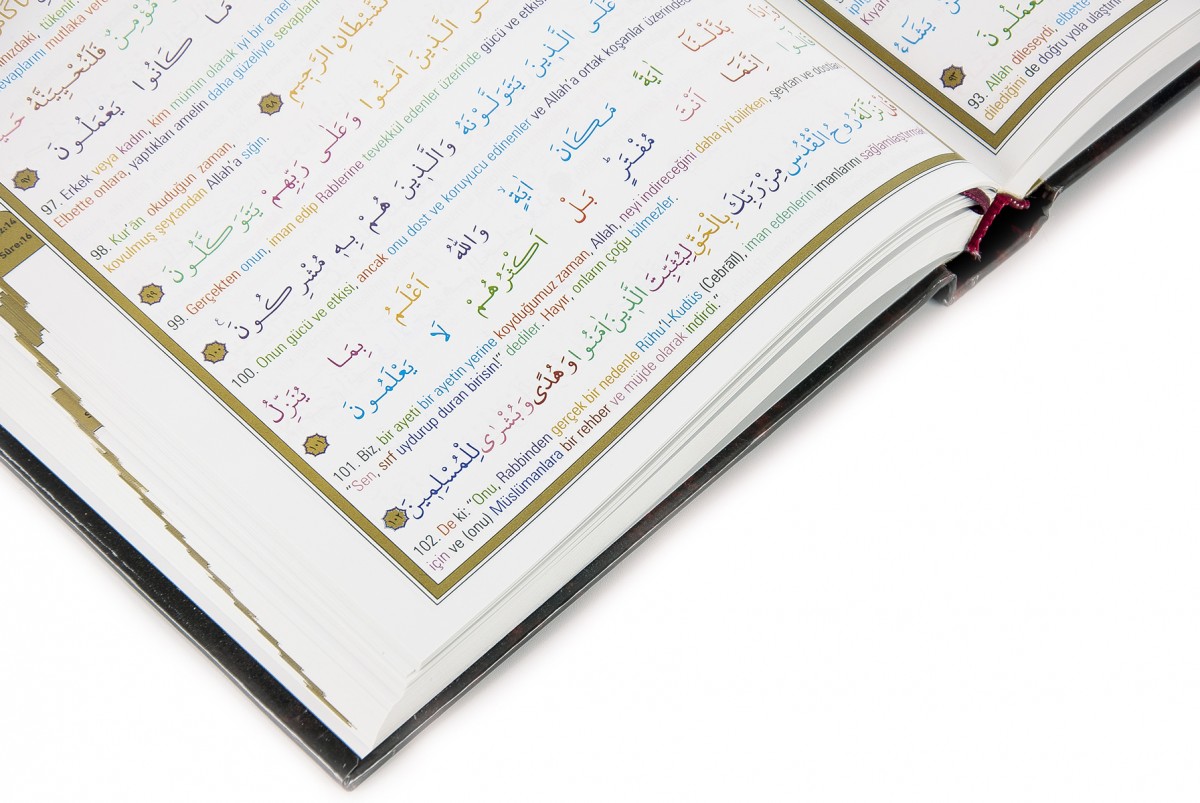 tükenir
مُؤْمِنٌ فَلَنُحْيِيَنَّهُ
مَا كَانُوا يَعْمَلُونَ ٩٧
97. Erkek veya kadın, kim mümin olarak iyi bir amel
Elbette onlara, yaptıkları amelin daha güzeliyle sevapların
الشَّيْطَانِ الرَّجِيمِ ٩٨
98. Kur'ân okuduğun zaman,
kovulmuş şeytandan Allah'a sığın.
الَّذِينَ اٰمَنُوا وَعَلٰى رَبِّهِمْ يَتَوَكَّلُونَ ٩٩
99. Gerçekten onun, iman edip Rablerine tevekkül edenler üzerinde gücü ve etkisi
عَلَى الَّذِينَ يَتَوَلَّوْنَهُ وَالَّذِينَ هُمْ بِهِ مُشْرِكُونَ ١٠٠
100. Onun gücü ve etkisi, ancak onu dost ve koruyucu edinenler ve Allah'a ortak koşanlar üzerindes
بَدَّلْنَٓا اٰيَةً مَكَانَ اٰيَةٍ وَاللّٰهُ اَعْلَمُ بِمَا يُنَزِّلُ
اِنَّمَٓا اَنْتَ مُفْتَرٍ بَلْ اَكْثَرُهُمْ لَا يَعْلَمُونَ ١٠١
101. Biz, bir ayeti bir ayetin yerine koyduğumuz zaman, Allah, neyi indireceğini daha iyi bilirken, şeytan ve dostlar
"Sen, sırf uydurup duran birisin!" dediler. Hayır, onların çoğu bilmezler.
نَزَّلَهُ رُوحُ الْقُدُسِ مِنْ رَبِّكَ بِالْحَقِّ لِيُثَبِّتَ الَّذِينَ اٰمَنُوا وَهُدًى وَبُشْرٰى لِلْمُسْلِمِينَ ١٠٢
102. De ki: "Onu, Rabbinden gerçek bir nedenle Rûhu'l-Kudüs (Cebrâîl), iman edenlerin imanlarını sağlamlaştırmak
için ve (onu) Müslümanlara bir rehber ve müjde olarak indirdi."
Sûre:16
يَشَٓاءُ
٩٣
93. Allah dileseydi, elbette
dilediğini de doğru yola ulaştırır